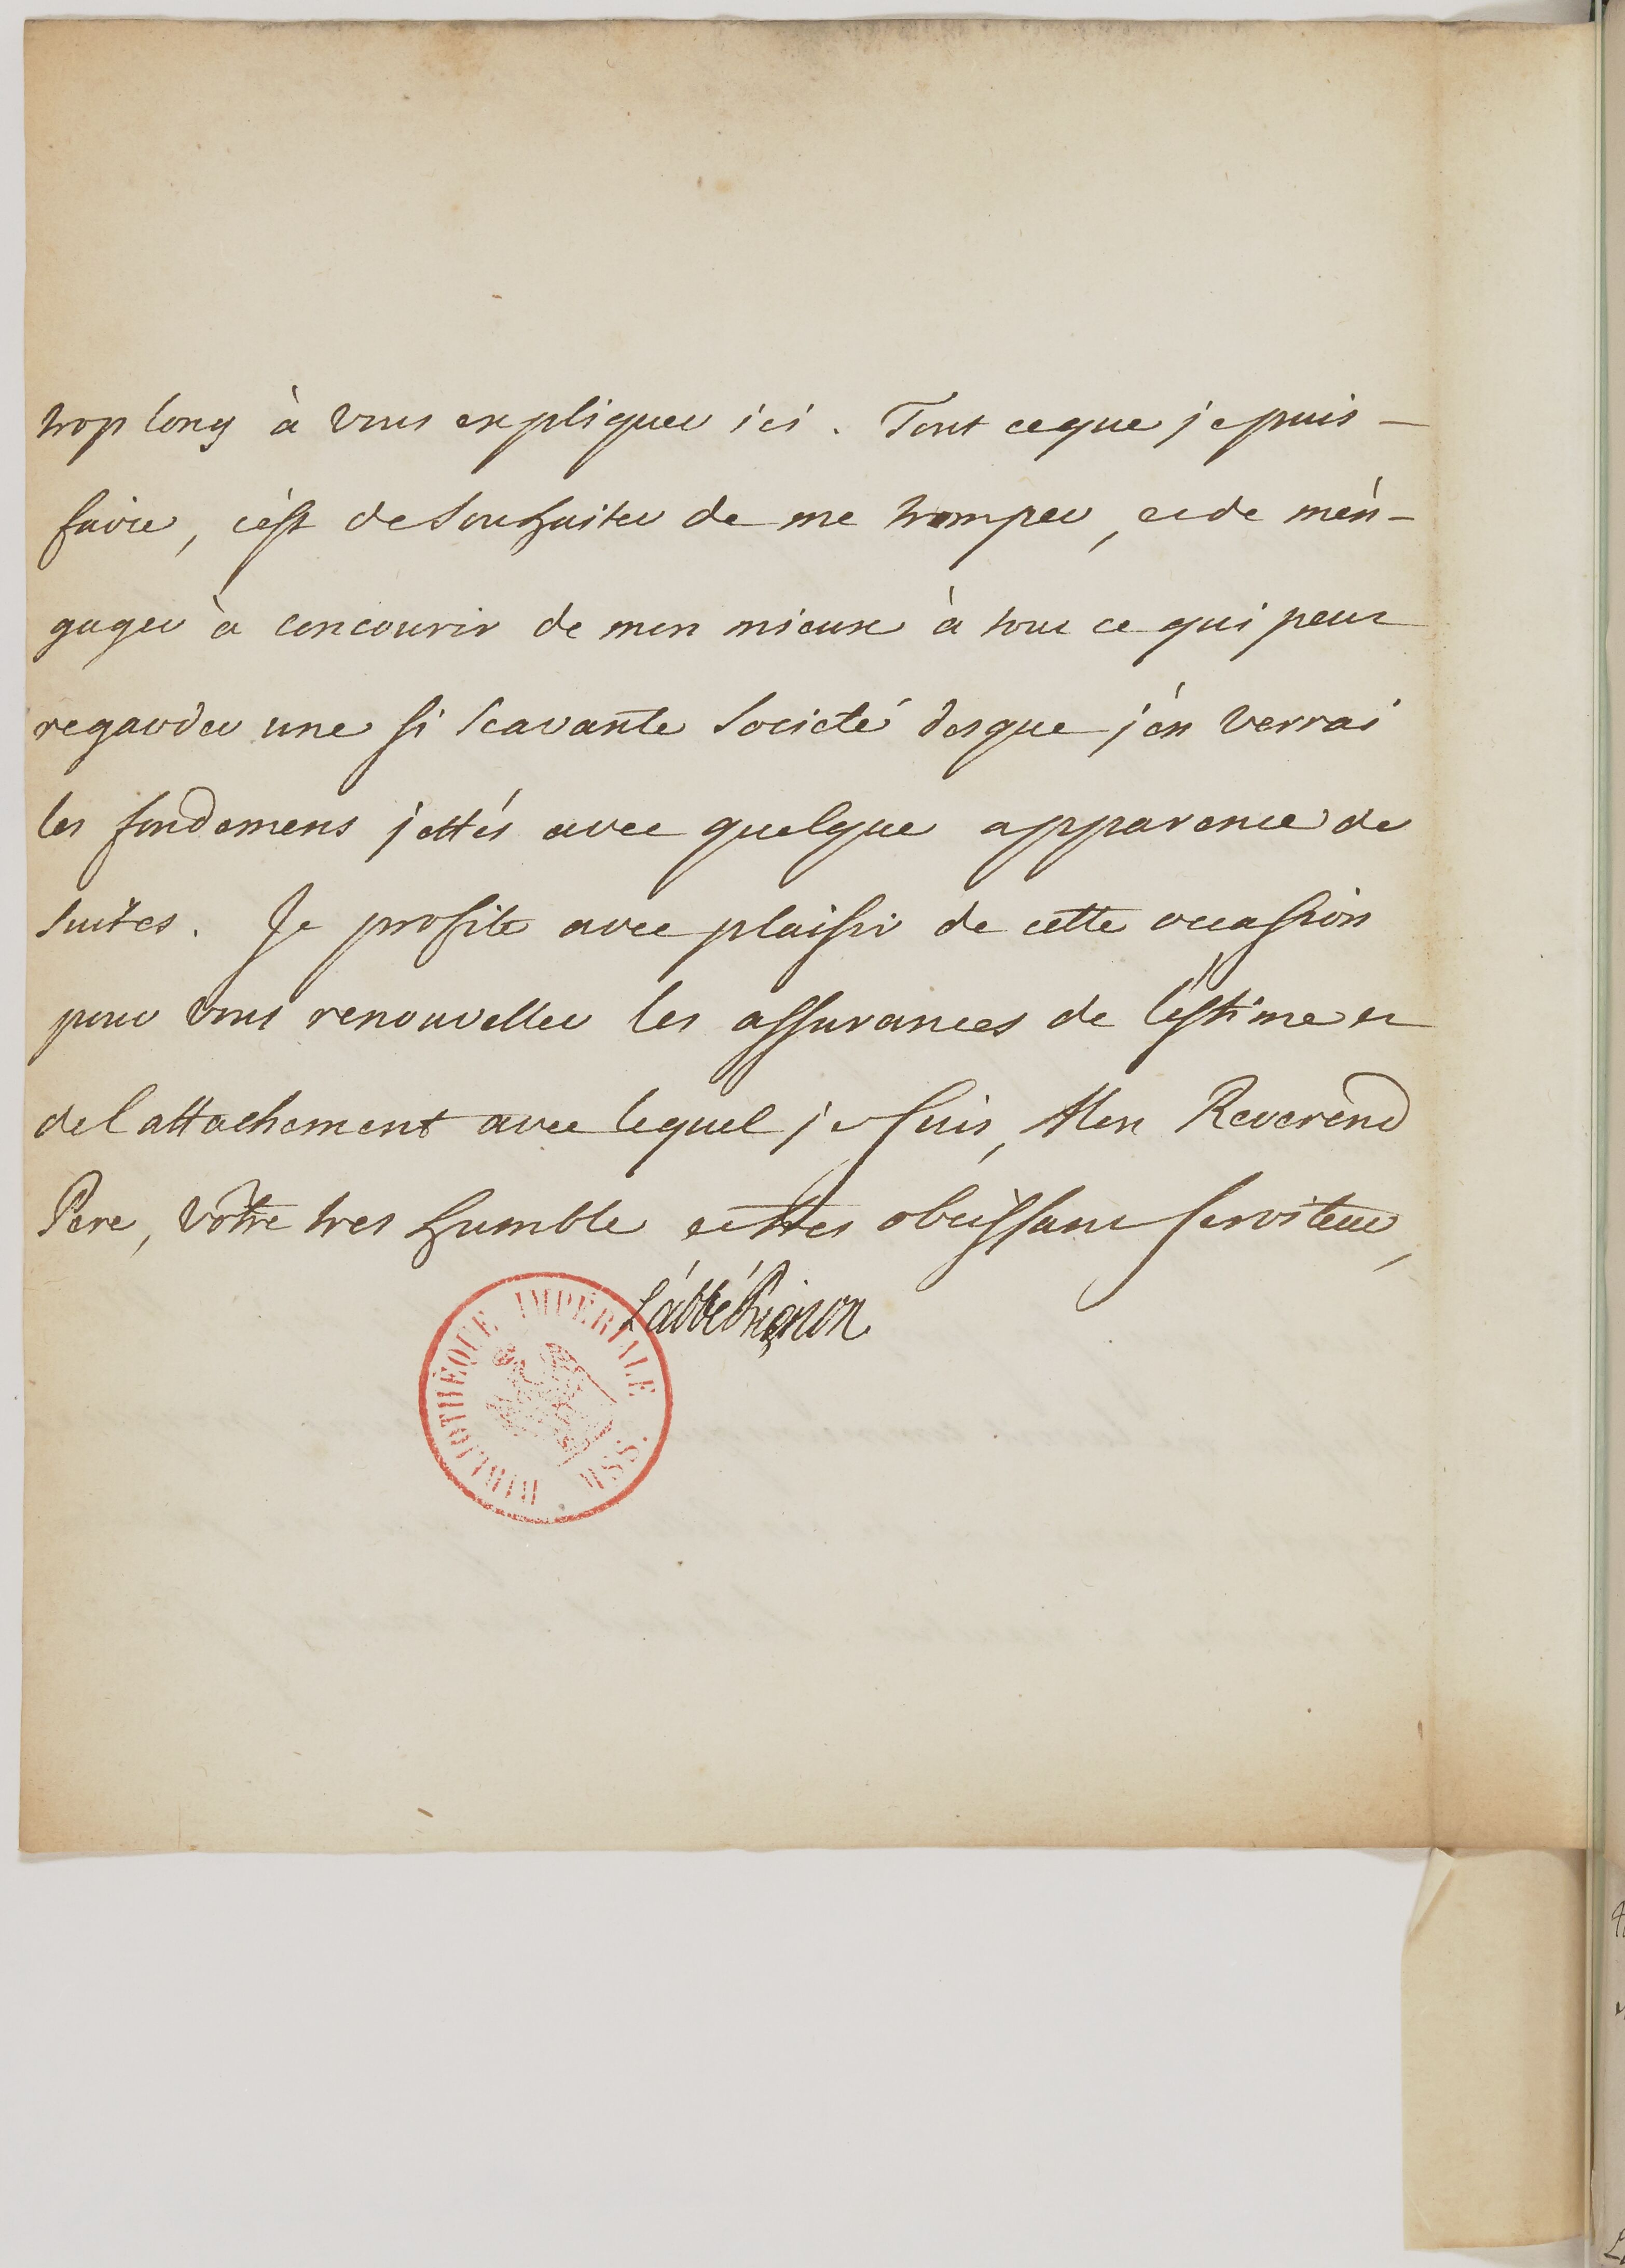 trop long à vous expliquer ici. Tout ce que je puis
faire, c'est de souhaiter de me tromper, et de m'en-
gager à concourir de mon mieux à tout ce qui peut
regarder une si scavante societé desque j'en verrai
les fondemens jettés avec quelque apparence de
suites. Je profite avec plaisir de cette occasion
pour vous renouveller les assurances de l'estime et
de l'attachement avec lequel je suis, Mon Reverend
Pere, vôtre tres humble et tres obeissant serviteur,
L'abbé Bignon
BIBLIOTHÈQUE IMPÉRIALE MSS.